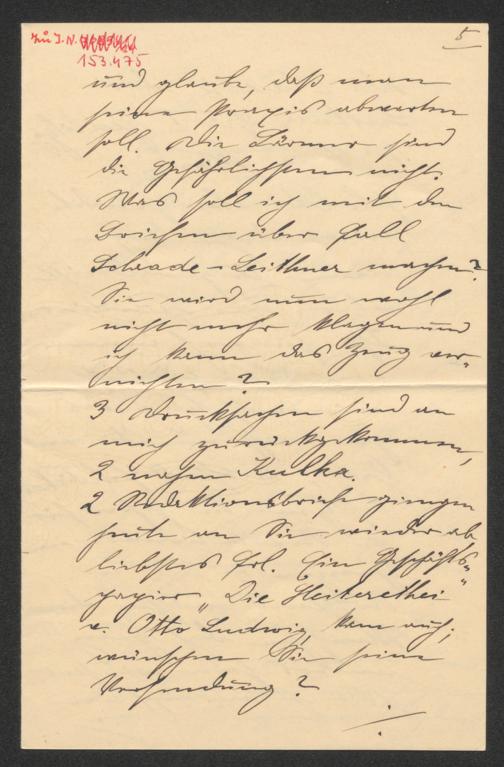 Zu I.N.
153.475
5
und glaube, daß man
seine Praxis abwarten
soll. Die Lärmer sind
die Gefährlichsten nicht.
Was soll ich mit den
Briefen über Fall
Schrade-Leithner machen?
Sie wird nun wohl
nicht mehr klagen und
ich kann das Zeug ver-
nichten?
3 Drucksachen sind an
mich zurückgekommen,
2 nahm Kulka.
2 Redaktionsbriefe giengen
heute an Sie wieder ab
liebstes Frl. Ein Geschäfts-
papier „Die Heiterethei"
v. Otto Ludwig, kam auch;
wünschen Sie seine
Versendung?